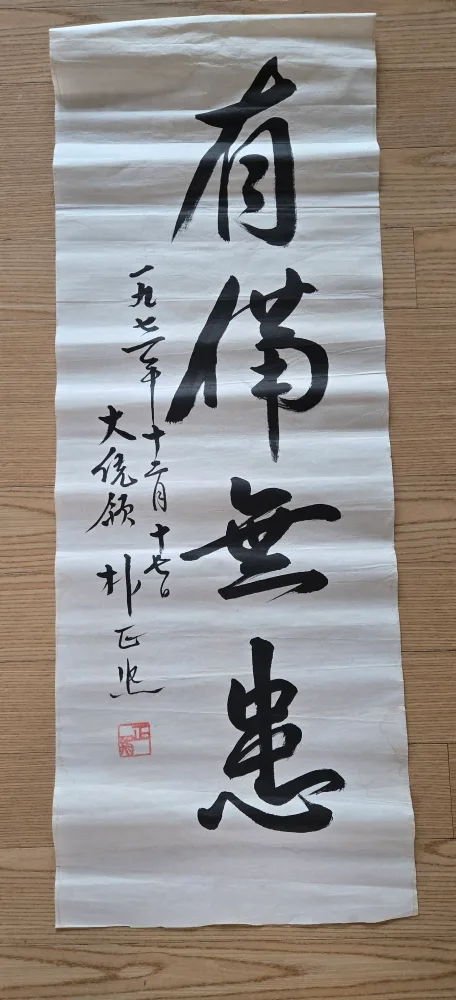 有備無患
一九七一年十二月十七日
大統領 朴正熙
正熙